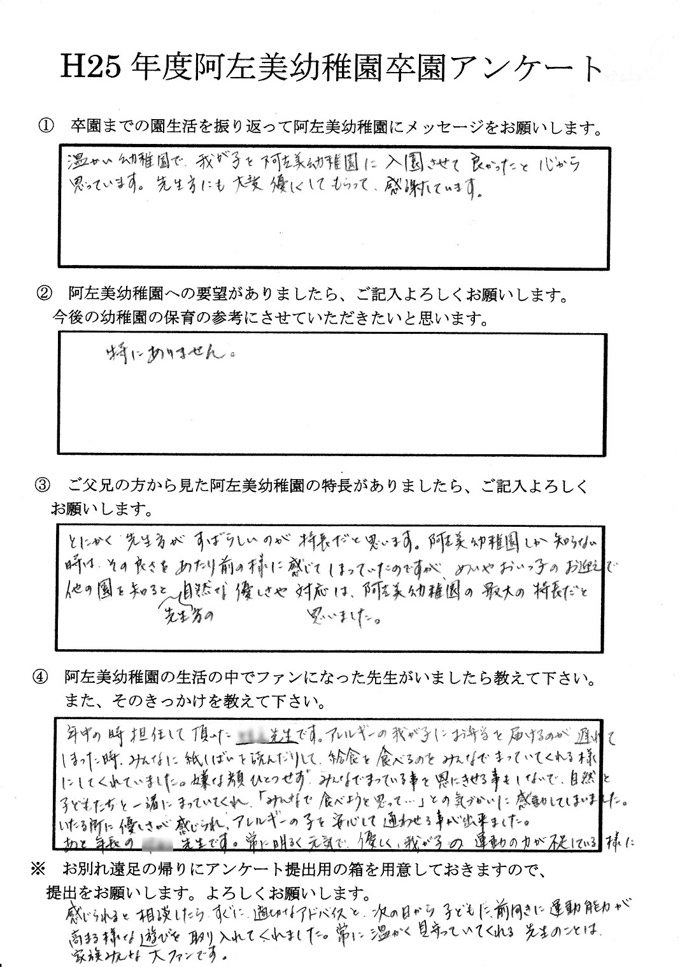 H25 年度阿左美幼稚園卒園アンケート
① 卒園までの園生活を振り返って阿左美幼稚園にメッセージをお願いします。
温かい幼稚園で、我が子を阿左美幼稚園に入園させて良かったと心から
思っています。先生方にも大変優しくしてもらって、感謝しています。
② 阿左美幼稚園への要望がありましたら、ご記入よろしくお願いします。
今後の幼稚園の保育の参考にさせていただきたいと思います。
特にありません。
③ ご父兄の方から見た阿左美幼稚園の特長がありましたら、ご記入よろしく
お願いします。
とにかく先生方がすばらしいのが特長だと思います。阿左美幼稚園しか知らない
時は、その良さをあたり前の様に感じてしまっていたのですが、めいやおいっ子のお迎えで
他の園を知ると、自然な優しさや対応は、阿左美幼稚園の最大の特長だと
先生方の 思いました。
④ 阿左美幼稚園の生活の中でファンになった先生がいましたら教えて下さい。
また、そのきっかけを教えて下さい。
年中の時担任して頂いた 先生です。アレルギーの我が子にお弁当を届けるのが遅れて
しまった時、みんなに紙しばいを読んだりして、給食を食べるのをみんなでまっていてくれる様
にしてくれていました。嫌な顔ひとつせず、みんなでまっている事を思にきせる事もしないで、自然と
子どもたちと一緒にまっていてくれ、「みんなで食べようと思って…」との気づかいに感動してしまいました。
いたる所に優しさが感じられ、アレルギーの子を安心して通わせる事が出来ました。
あと年長の 先生です。常に明るく元気で、優しく、我が子の運動の力が不足している様に
※ お別れ遠足の帰りにアンケート提出用の箱を用意しておきますので、
提出をお願いします。よろしくお願いします。
感じられると相談したら、すぐに、適切なアドバイスと、次の日から子どもに、前向きに運動能力が
高まる様な遊びを取り入れてくれました。常に温かく見守っていてくれる先生のことは、
家族みんな大ファンです。